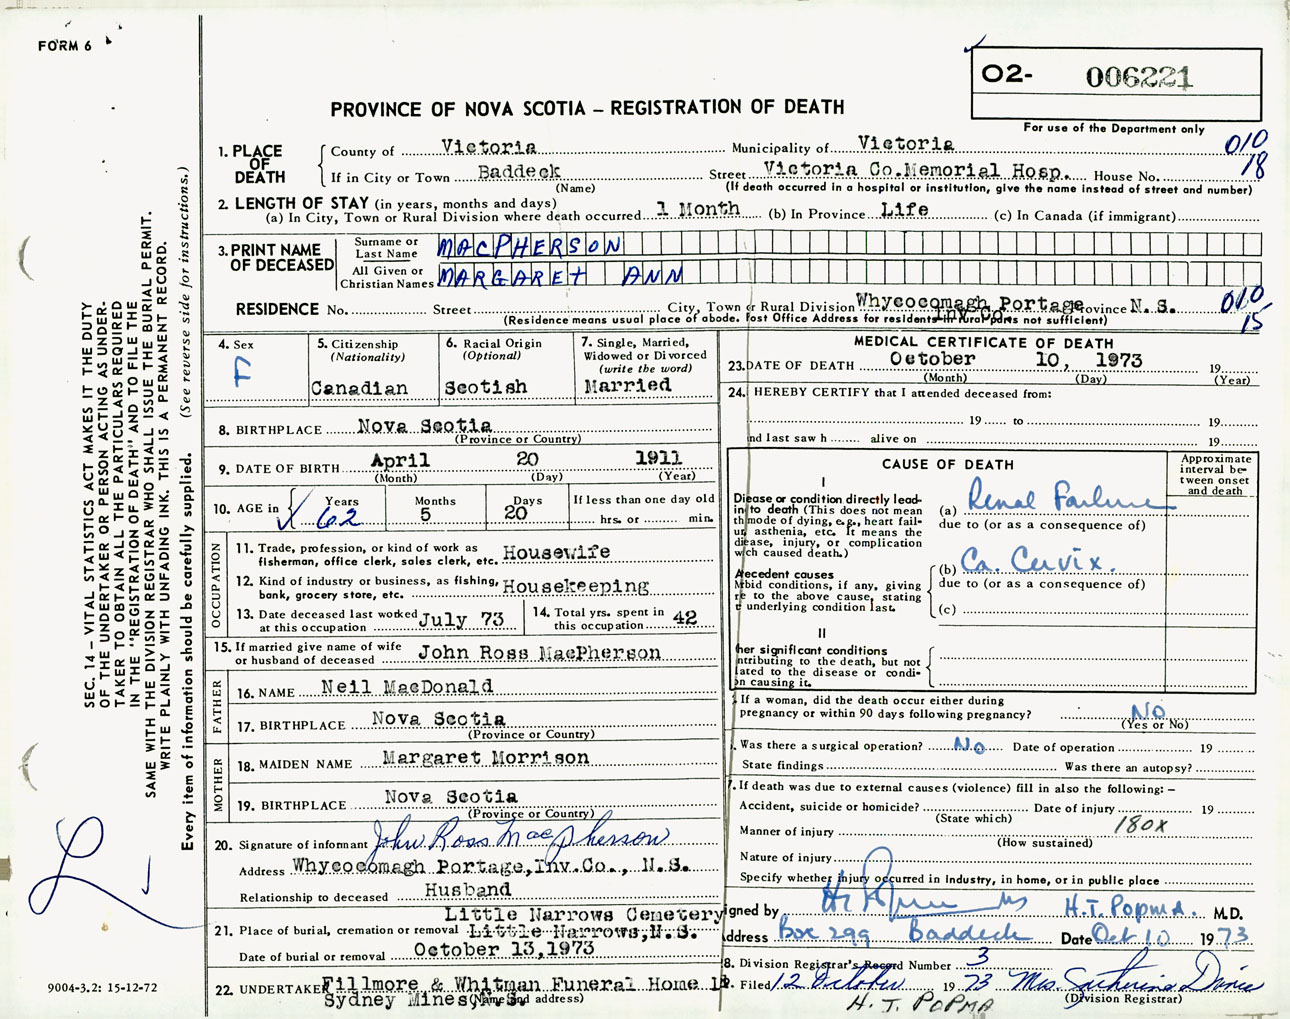 FORM 6
O2- 006221
PROVINCE OF NOVA SCOTIA – REGISTRATION OF DEATH
For use of the Department only
1. PLACE OF DEATH
County of Victoria Municipality of Victoria 010
If in City or Town Baddeck Street Victoria Co.Memorial Hosp. House No. 18
(Name) (If death occurred in a hospital or institution, give the name instead of street and number)
2. LENGTH OF STAY (in years, months and days)
(a) In City, Town or Rural Division where death occurred 1 Month (b) In Province Life (c) In Canada (if immigrant)
3. PRINT NAME OF DECEASED
Surname or Last Name MACPHERSON
All Given or Christian Names MARGARET ANN
RESIDENCE No. Street City, Town or Rural Division Whycocomagh Portage Province N.S. 010
Inv.Co. 15
(Residence means usual place of abode. Post Office Address for residents in rural parts not sufficient)
4. Sex F
5. Citizenship (Nationality) Canadian
6. Racial Origin (Optional) Scotish
7. Single, Married, Widowed or Divorced (write the word) Married
8. BIRTHPLACE Nova Scotia
(Province or Country)
9. DATE OF BIRTH April 20 1911
(Month) (Day) (Year)
10. AGE in Years 62 Months 5 Days 20 If less than one day old hrs. or min.
OCCUPATION
11. Trade, profession, or kind of work as fisherman, office clerk, sales clerk, etc. Housewife
12. Kind of industry or business, as fishing, bank, grocery store, etc. Housekeeping
13. Date deceased last worked at this occupation July 73
14. Total yrs. spent in this occupation 42
15. If married give name of wife or husband of deceased John Ross MacPherson
FATHER
16. NAME Neil MacDonald
17. BIRTHPLACE Nova Scotia
(Province or Country)
MOTHER
18. MAIDEN NAME Margaret Morrison
19. BIRTHPLACE Nova Scotia
(Province or Country)
20. Signature of informant John Ross MacPherson
Address Whycocomagh Portage,Inv.Co., N.S.
Relationship to deceased Husband
Little Narrows Cemetery
21. Place of burial, cremation or removal Little Narrows,N.S.
Date of burial or removal October 13,1973
22. UNDERTAKER Fillmore & Whitman Funeral Home
Sydney Mines,N.S.
(Name and address)
MEDICAL CERTIFICATE OF DEATH
23. DATE OF DEATH October 10, 1973 19
(Month) (Day) (Year)
24. HEREBY CERTIFY that I attended deceased from:
19 to 19
nd last saw h alive on 19
CAUSE OF DEATH
Approximate interval between onset and death
I
Disease or condition directly leading to death (This does not mean the mode of dying, e.g., heart failure, asthenia, etc. It means the disease, injury, or complication which caused death.)
(a) Renal Failure
due to (or as a consequence of)
Antecedent causes
Morbid conditions, if any, giving rise to the above cause, stating underlying condition last.
(b) Ca. Cervix.
due to (or as a consequence of)
(c)
II
her significant conditions
ntributing to the death, but not
lated to the disease or condi-
on causing it.
If a woman, did the death occur either during pregnancy or within 90 days following pregnancy? NO
(Yes or No)
Was there a surgical operation? No Date of operation 19
State findings Was there an autopsy?
7. If death was due to external causes (violence) fill in also the following: –
Accident, suicide or homicide? Date of injury 19
(State which) 180X
Manner of injury
(How sustained)
Nature of injury
Specify whether injury occurred in industry, in home, or in public place
igned by H.T. POPMA. M.D.
Address Box 299 Baddeck Date Oct 10 1973
8. Division Registrar's Record Number 3
Filed 12 October 1973 Mrs.
(Division Registrar)
H.T. POPMA
SEC. 14 – VITAL STATISTICS ACT MAKES IT THE DUTY
OF THE UNDERTAKER OR PERSON ACTING AS UNDER-
TAKER TO OBTAIN ALL THE PARTICULARS REQUIRED
IN THE "REGISTRATION OF DEATH" AND TO FILE THE
SAME WITH THE DIVISION REGISTRAR WHO SHALL ISSUE THE BURIAL PERMIT.
WRITE PLAINLY WITH UNFADING INK. THIS IS A PERMANENT RECORD.
Every item of information should be carefully supplied. (See reverse side for instructions.)
9004-3.2: 15-12-72